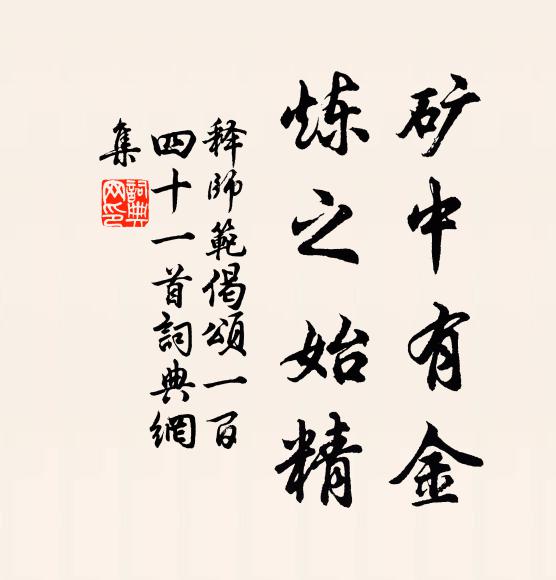 矿中有金
炼之始精
释师範偈頌一百
四十一首詞典網
集
詞典网印